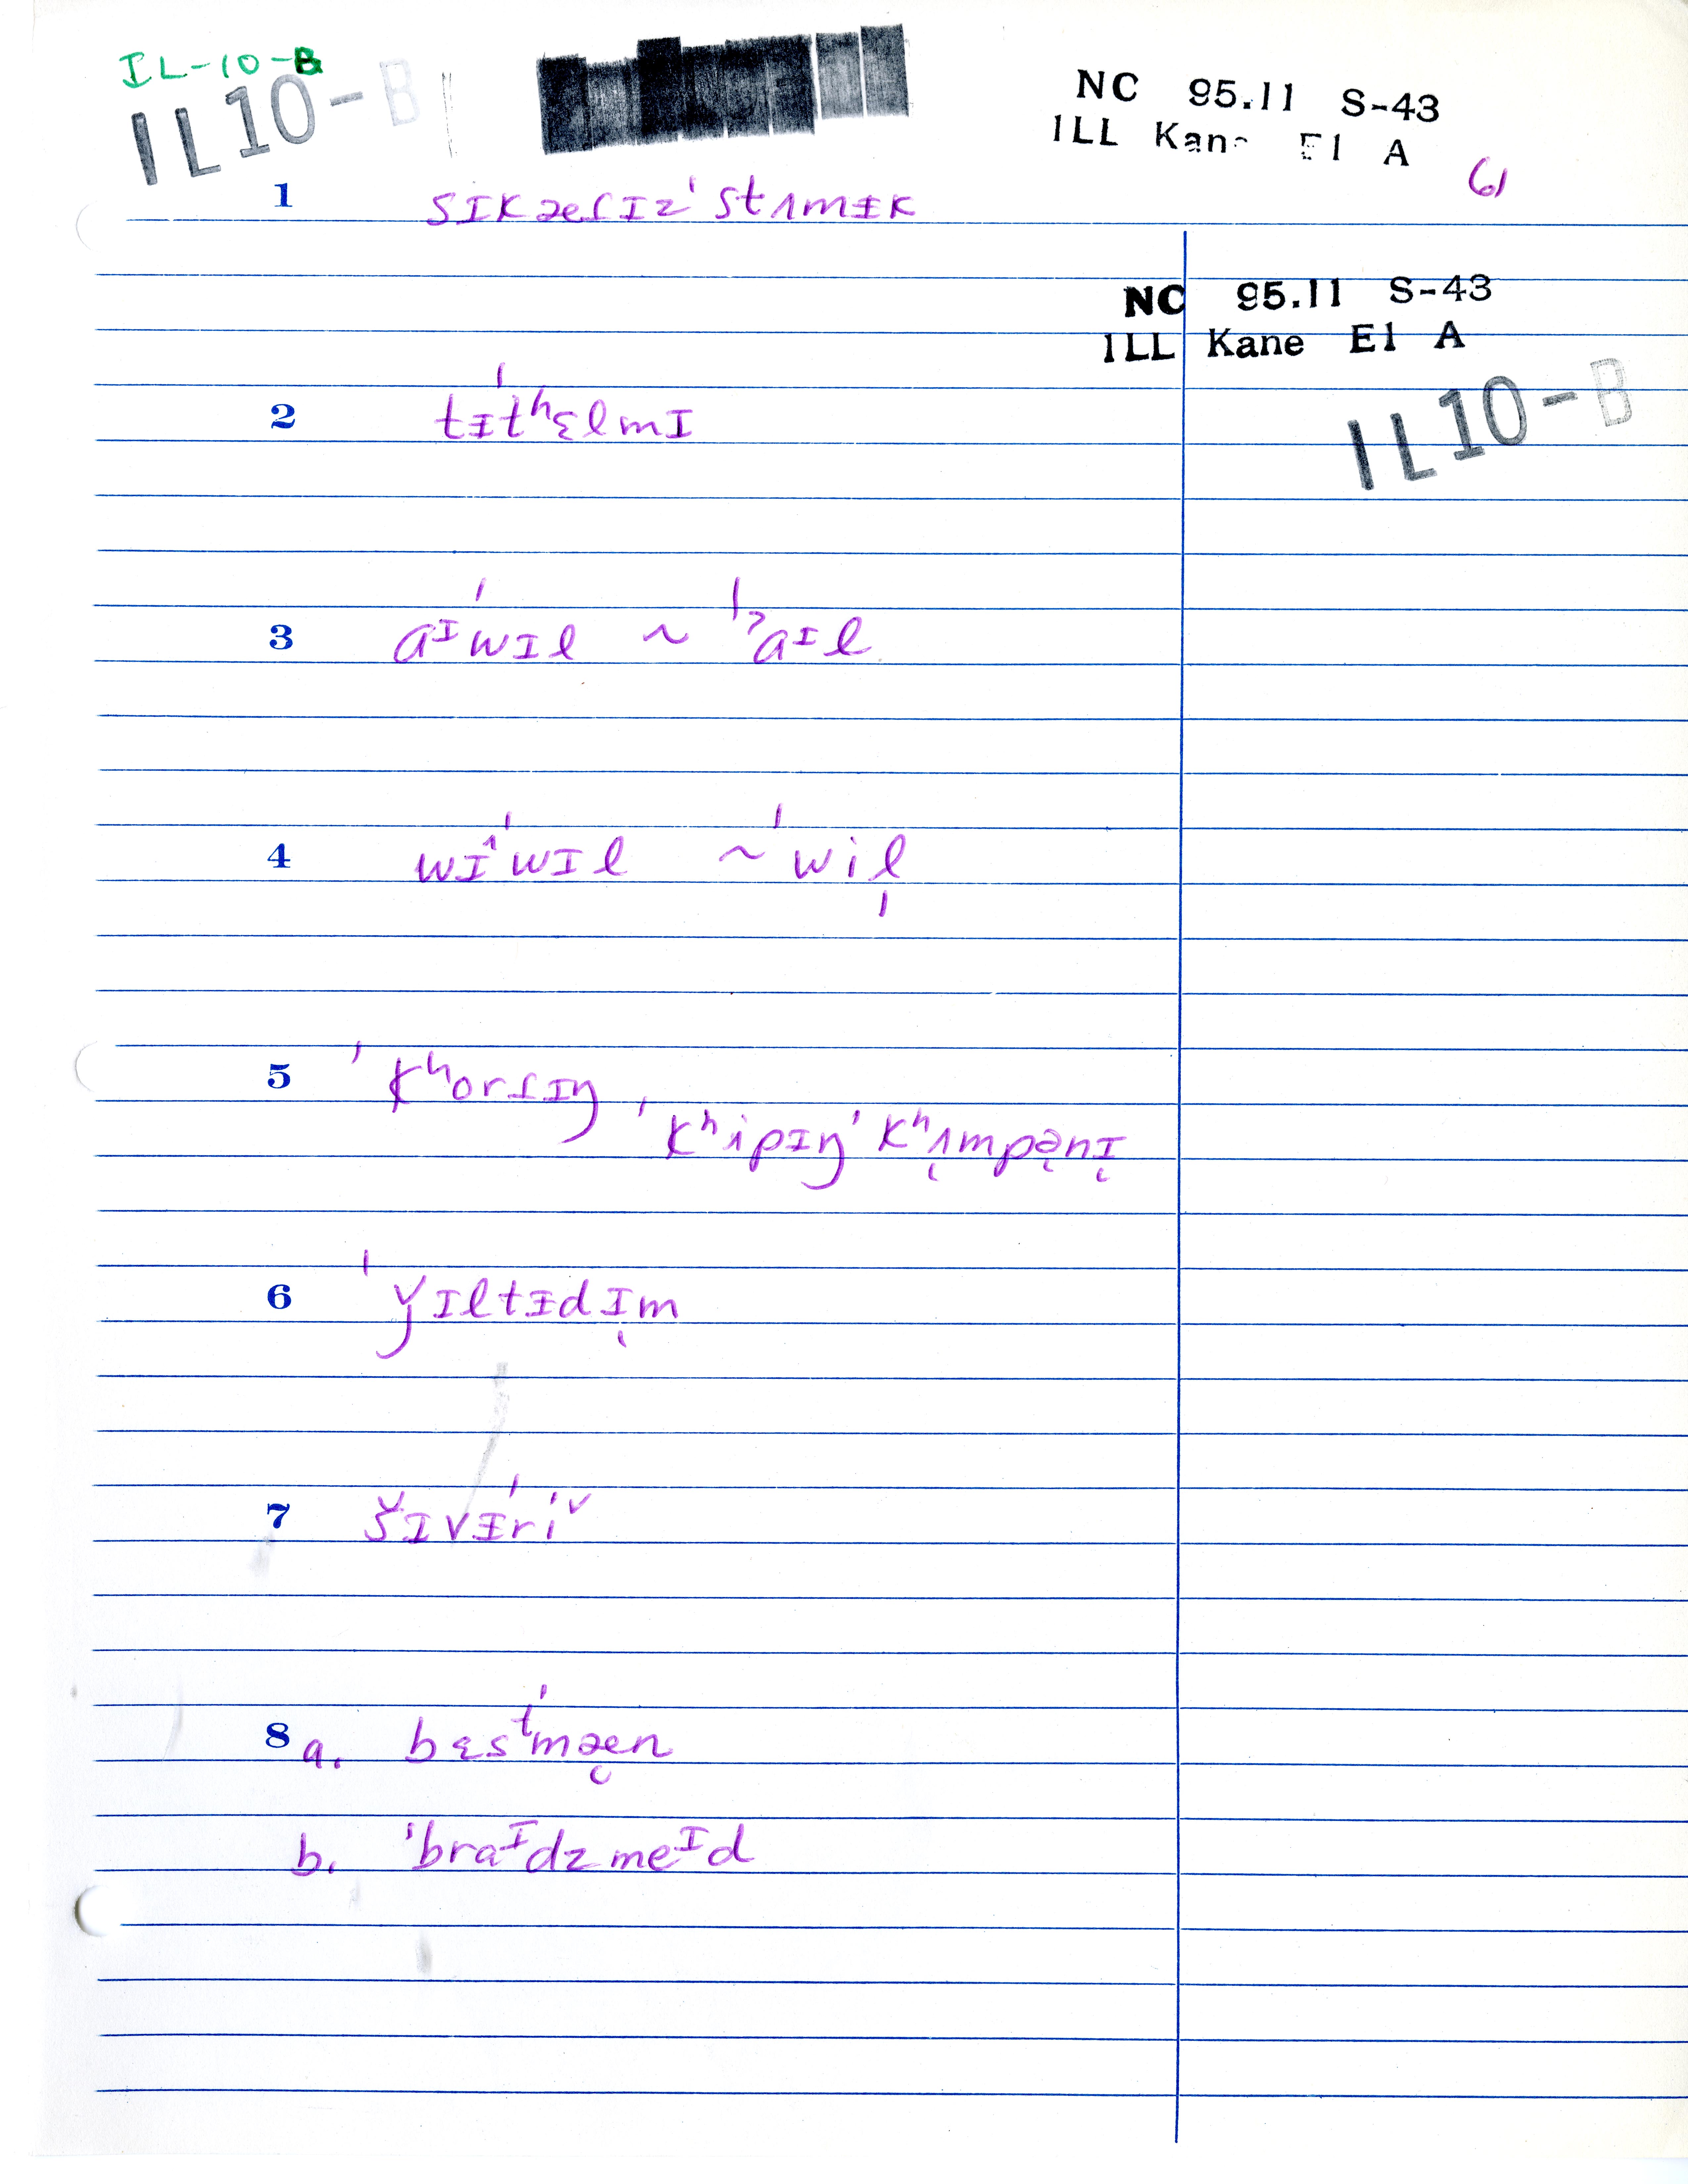 IL-10-B
IL10-B
NC 95.11 S-43
ILL Kane El A
61
1 sɪkæɾɪz ˈstʌmɨk
NC 95.11 S-43
ILL Kane El A
IL10-B
2 tɨˈtʰɛlmɪ
3 aᶦˈwɪl ~ ˈˀaᶦl
4 wɪ^ˈwɪl ~ ˈwil̩
5 ˈkʰorɾɪŋ
ˈkʰipɪŋ ˈkʰʌmpənɪ
6 ˈy̌ɪltɨdɪm
7 šɪvɨˈriˇ
8 a. bɛsᵗˈmæn
b. ˈbraᶦdzmeᶦd